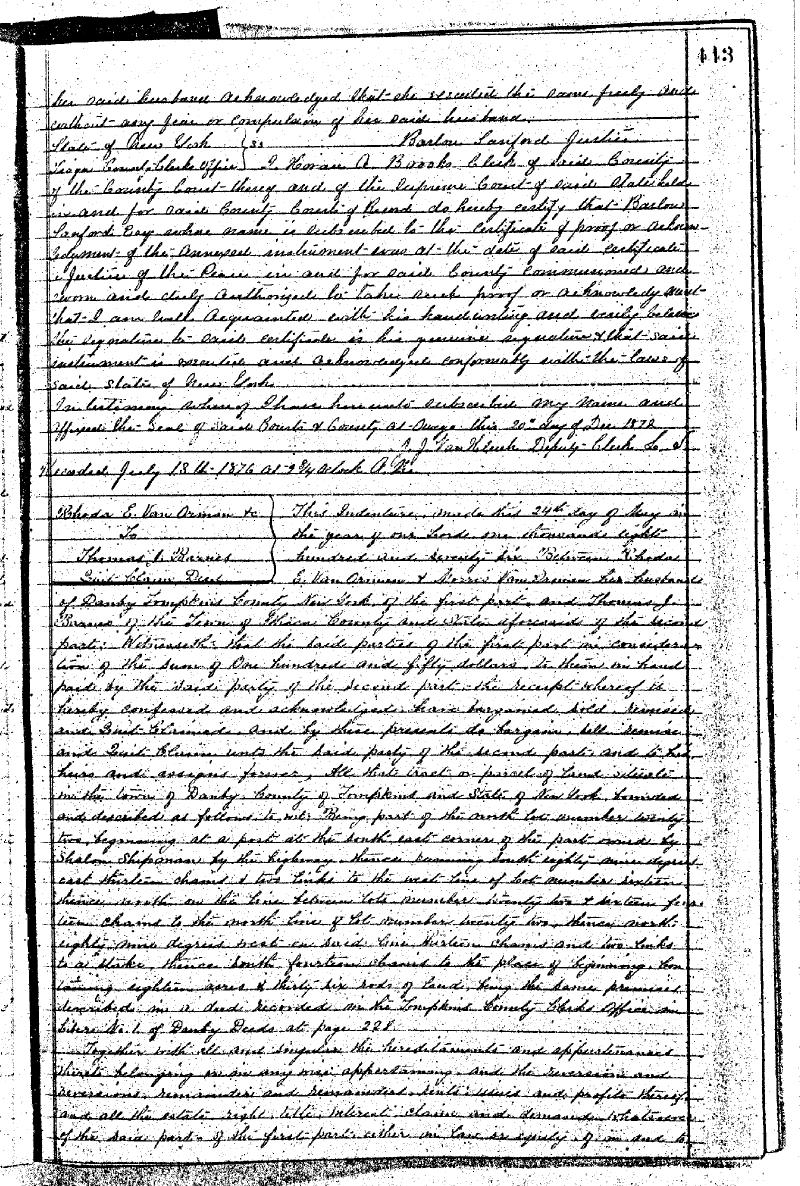 443
her said husband acknowledged that she executed the same freely and
without any fear or compulsion of her said husband.
State of New York } ss Barlow Sanford Justice
Tioga County Clerks Office } I Horace A Brooks Clerk of said County
of the County Court thereof and of the Supreme Court of said State held
in and for said County Court of Record do hereby certify that Barlow
Sanford Esq whose name is subscribed to the certificate of proof or acknow-
ledgment of the annexed instrument was at the date of said certificate
a Justice of the Peace in and for said County Commissioned and
sworn and duly authorized to take such proof or acknowledgment
that I am well acquainted with his handwriting and verily believe
the signature to said certificate is his genuine signature & that said
instrument is executed and acknowledged conformably with the laws of
said State of New York
In testimony whereof I have hereunto subscribed my name and
affixed the Seal of said Courts & County at Owego this 20th day of Dec 1872
J. Van Kleeck Deputy Clerk L. S.
Recorded July 13th 1876 at O'clock A. M.
Rhoda E. Van Orman &c } This Indenture, made this 24th day of May in
To the year of our Lord one thousand eight
Thomas J. Barnes hundred and seventy six Between Rhoda
Quit Claim Deed E. Van Orman & Morris Van Orman her husband
of Danby Tompkins County New York, of the first part, and Thomas J.
Barnes of the Town of Ithaca County and State aforesaid of the second
part: Witnesseth, that the said parties of the first part in considera-
tion of the sum of One hundred and fifty dollars to them in hand
paid by the said party of the second part, the receipt whereof is
hereby confessed and acknowledged, have bargained, sold, remised
and Quit Claimed, and by these presents do bargain, sell, remise
and Quit Claim unto the said party of the second part, and to his
heirs and assigns forever, All that tract or parcel of Land situate
in the town of Danby County of Tompkins and State of New York, bounded
and described as follows to wit: Being part of the north lot number twenty
two, beginning at a post at the south east corner of the part owned by
Shalon Shipman by the highway, thence running south eighty nine degrees
east thirteen chains & two links to the west line of Lot number sixteen
thence north on the line between lots number twenty two & sixteen four-
teen chains to the north line of Lot number twenty two, thence north
eighty nine degrees west on said line thirteen chains and two links
to a stake, thence south fourteen chains to the place of beginning, Con-
taining eighteen acres & thirty six rods of land, being the same premises
described in a deed recorded in the Tompkins County Clerks Office in
Libere No. 1. of Danby Deeds at page 228
Together with all and singular the hereditaments and appurtenances
thereto belonging or in any wise appertaining, and the reversion and
reversions, remainder and remainders, rents, issues and profits thereof
and all the estate, right, title, interest, claim and demand, whatsoever
of the said parties of the first part, either in law or equity, of in and to